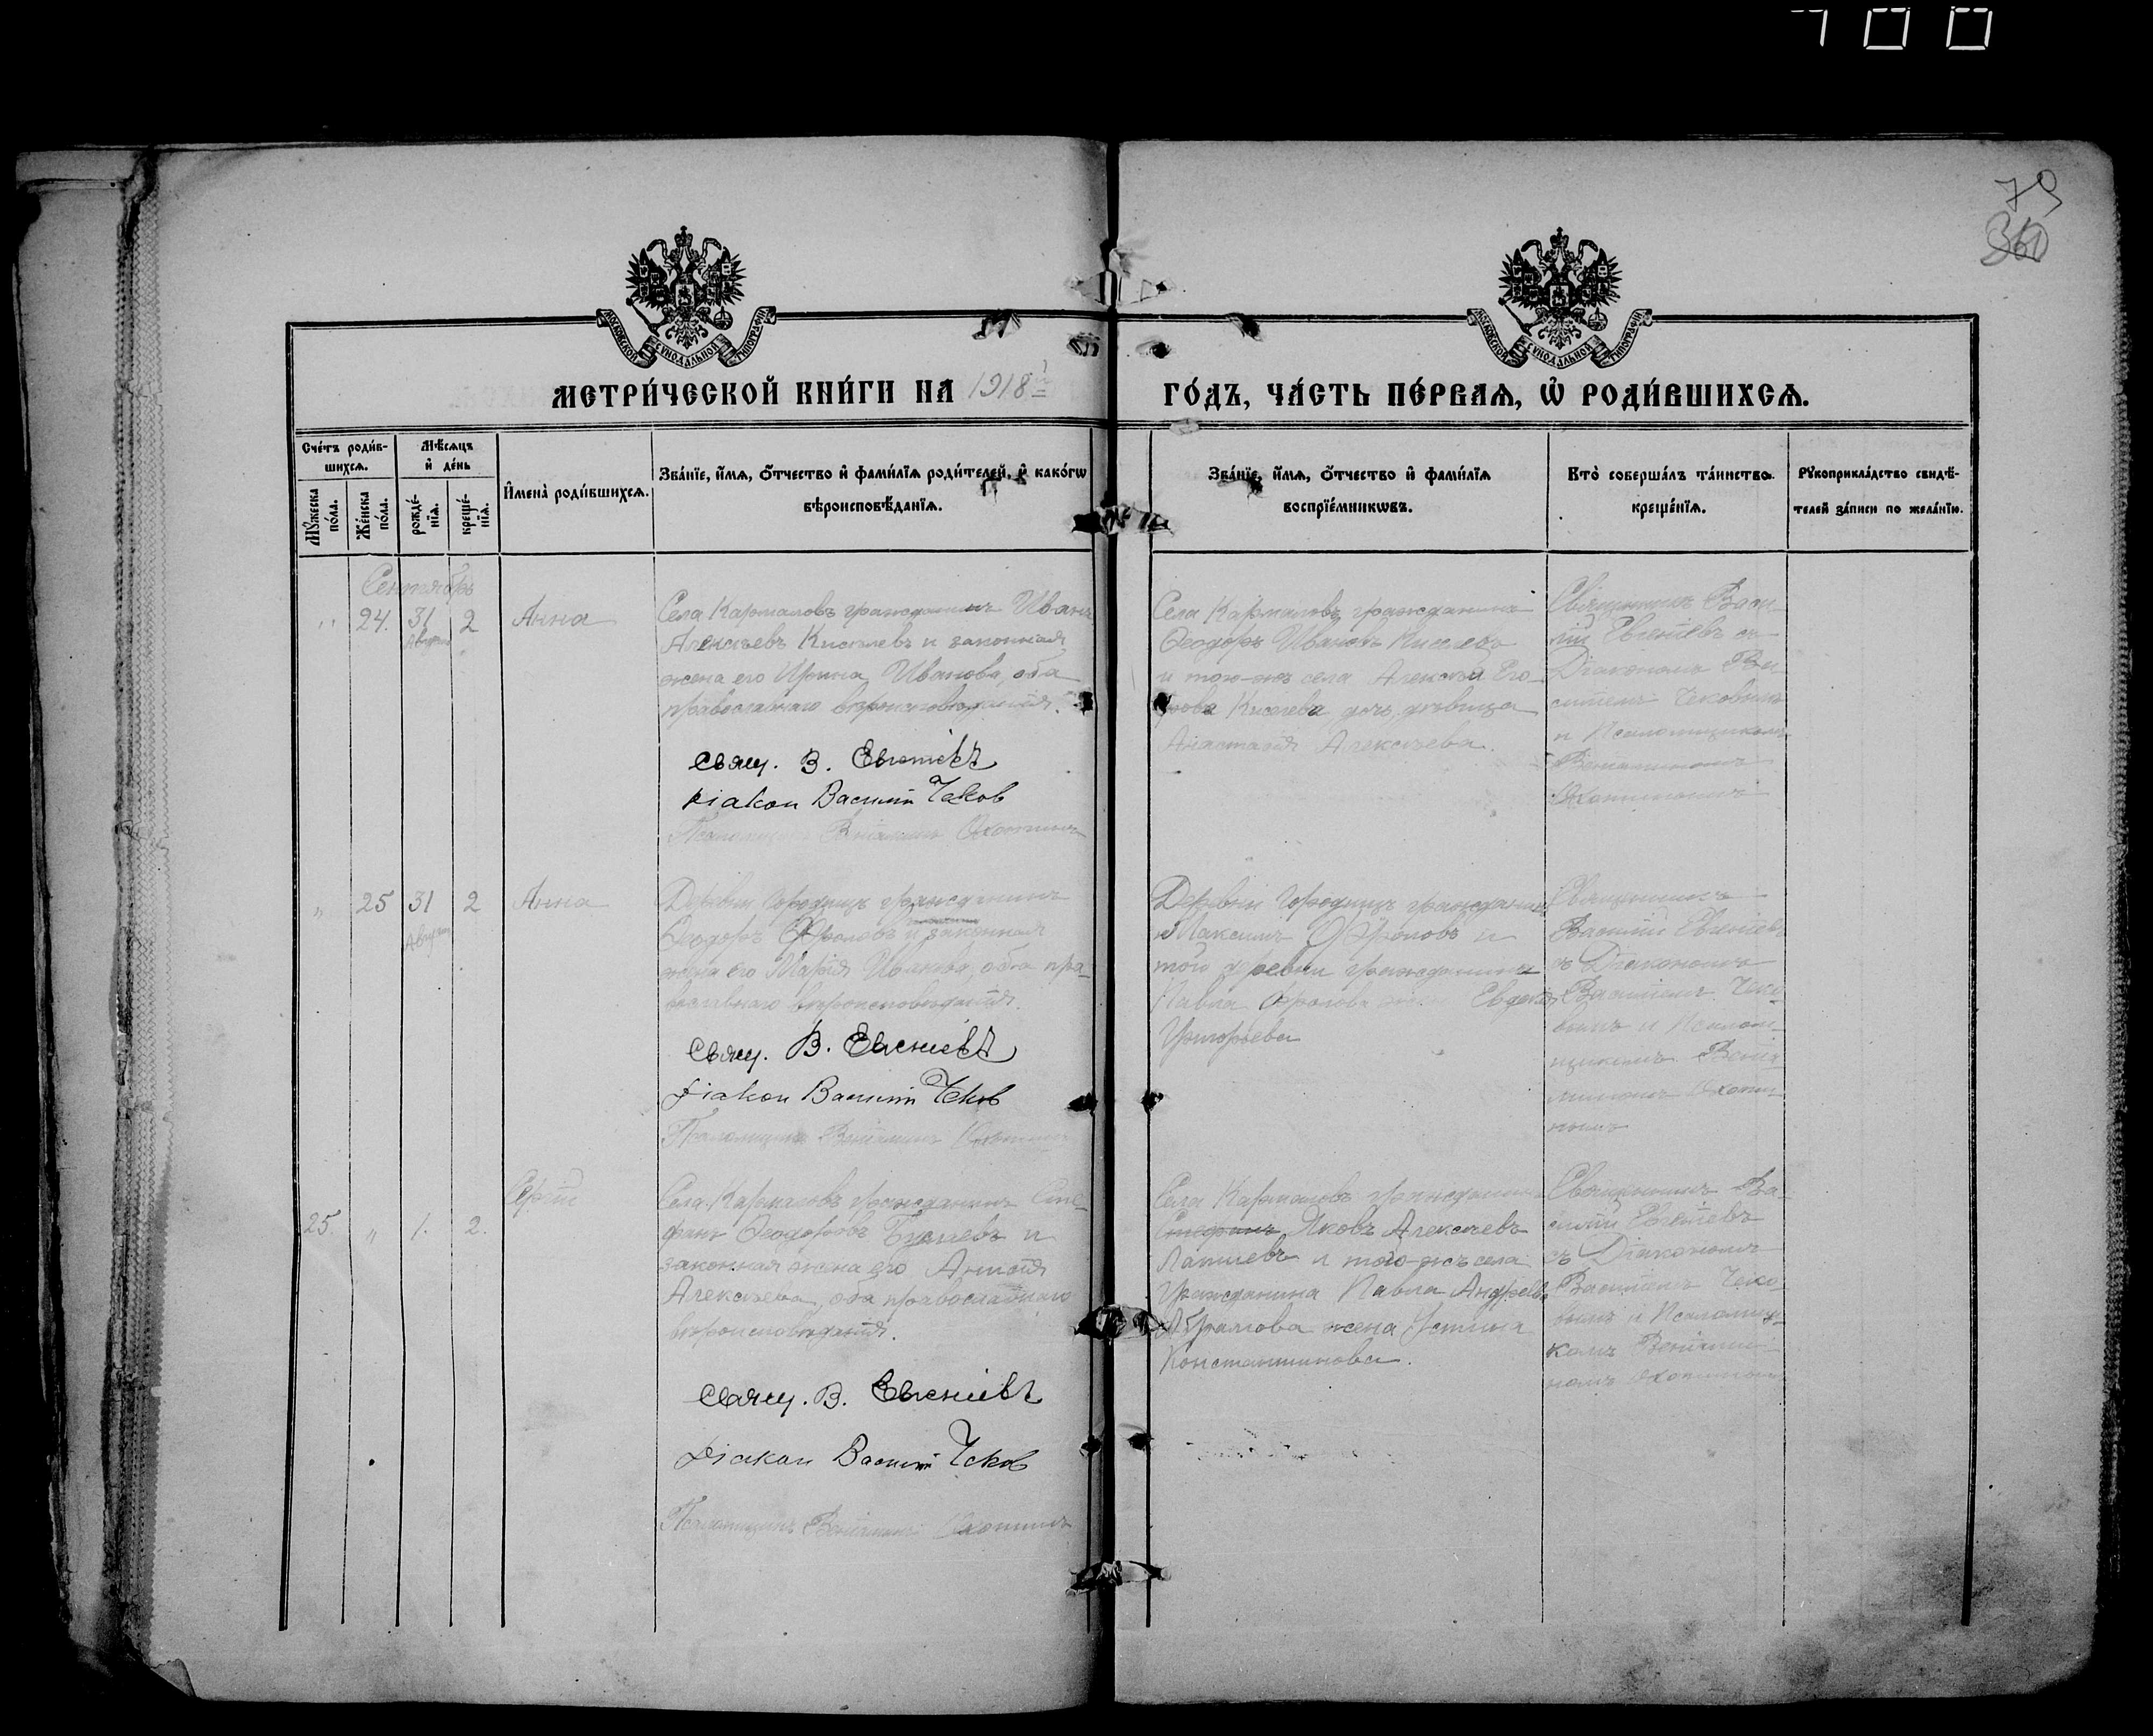 79
360
МОСКОВСКОЙ СѴНОДАЛЬНОЙ ТИПОГРАФІИ
МОСКОВСКОЙ СѴНОДАЛЬНОЙ ТИПОГРАФІИ
МЕТРИ́ЧЕСКОЙ КНИ́ГИ НА 1918й
ГО́ДЪ, ЧА́СТЬ ПЕ́РВАЯ, Ѡ҆ РОДИ́ВШИХСЯ.
Сче́тъ роди́в-
шихся.
Мꙋ́жеска по́ла.
Же́нска по́ла.
Мѣ́сяцъ
и҆ де́нь
рожде́-
нїя.
креще́-
нїя.
И҆мена̀ роди́вшихся.
Зва́нїе, и҆́мя, ѻ҆́тчество и҆ фами́лїя роди́телей, и҆ како́гѡ
вѣроисповѣ́данїя.
Зва́нїе, и҆́мя, ѻ҆́тчество и҆ фами́лїя
воспрїе́мникѡвъ.
Кто̀ соверша́лъ та́инство
креще́нїя.
Рꙋкоприкла́дство свидѣ́-
телей за́писи по жела́нїю.
Сентябрь
" 24. 31 2
Августа
Анна
Села Кармаловъ гражданинъ Иванъ
Алексѣевъ Киселевъ и законная
жена его Ирина Иванова, оба
православнаго вѣроисповѣданія.
Свящ. В. Евгеніевъ
Діакон Василій Чеков
Псаломщикъ Веніаминъ Охотинъ
Села Кармаловъ гражданинъ
Ѳеодоръ Ивановъ Киселевъ
и того-жъ села Алексѣя Его-
рова Киселева дочь дѣвица
Анастасія Алексѣева.
Священникъ Васи-
лій Евгеніевъ съ
Діакономъ Ва-
силіемъ Чековымъ
и Псаломщикомъ
Веніаминомъ
Охотинымъ
" 25 31 2
Августа
Анна
Деревни Городищъ гражданинъ
Ѳеодоръ Фроловъ и законная
жена его Марія Иванова, оба пра-
вославнаго вѣроисповѣданія.
Свящ. В. Евгеніевъ
Діакон Василій Чеков
Псаломщикъ Веніаминъ Охотинъ
Деревни Городищъ гражданинъ
Максимъ Фроловъ и
той деревни гражданина
Павла Фролова жена
Григорьева
Священникъ
Василій Евгеніевъ
съ Діакономъ
Василіемъ Чеко-
вымъ и Псалом-
щикомъ Веніа-
миномъ Охоти-
нымъ
25. " 1. 2.
Сергій
Села Кармаловъ гражданинъ Сте-
фанъ Ѳеодоровъ и
законная жена его
Алексѣева, оба православнаго
вѣроисповѣданія.
Свящ. В. Евгеніевъ
Діакон Василій Чеков
Псаломщикъ Веніаминъ Охотинъ
Села Кармаловъ гражданинъ
Стефанъ Яковъ Алексѣевъ
и того-жъ села
гражданина Павла Андреева
Абрамова жена Устина
Константинова.
Священникъ Ва-
силій Евгеніевъ
съ Діакономъ
Василіемъ Чеко-
вымъ и Псаломщи-
комъ Веніами-
номъ Охотинымъ